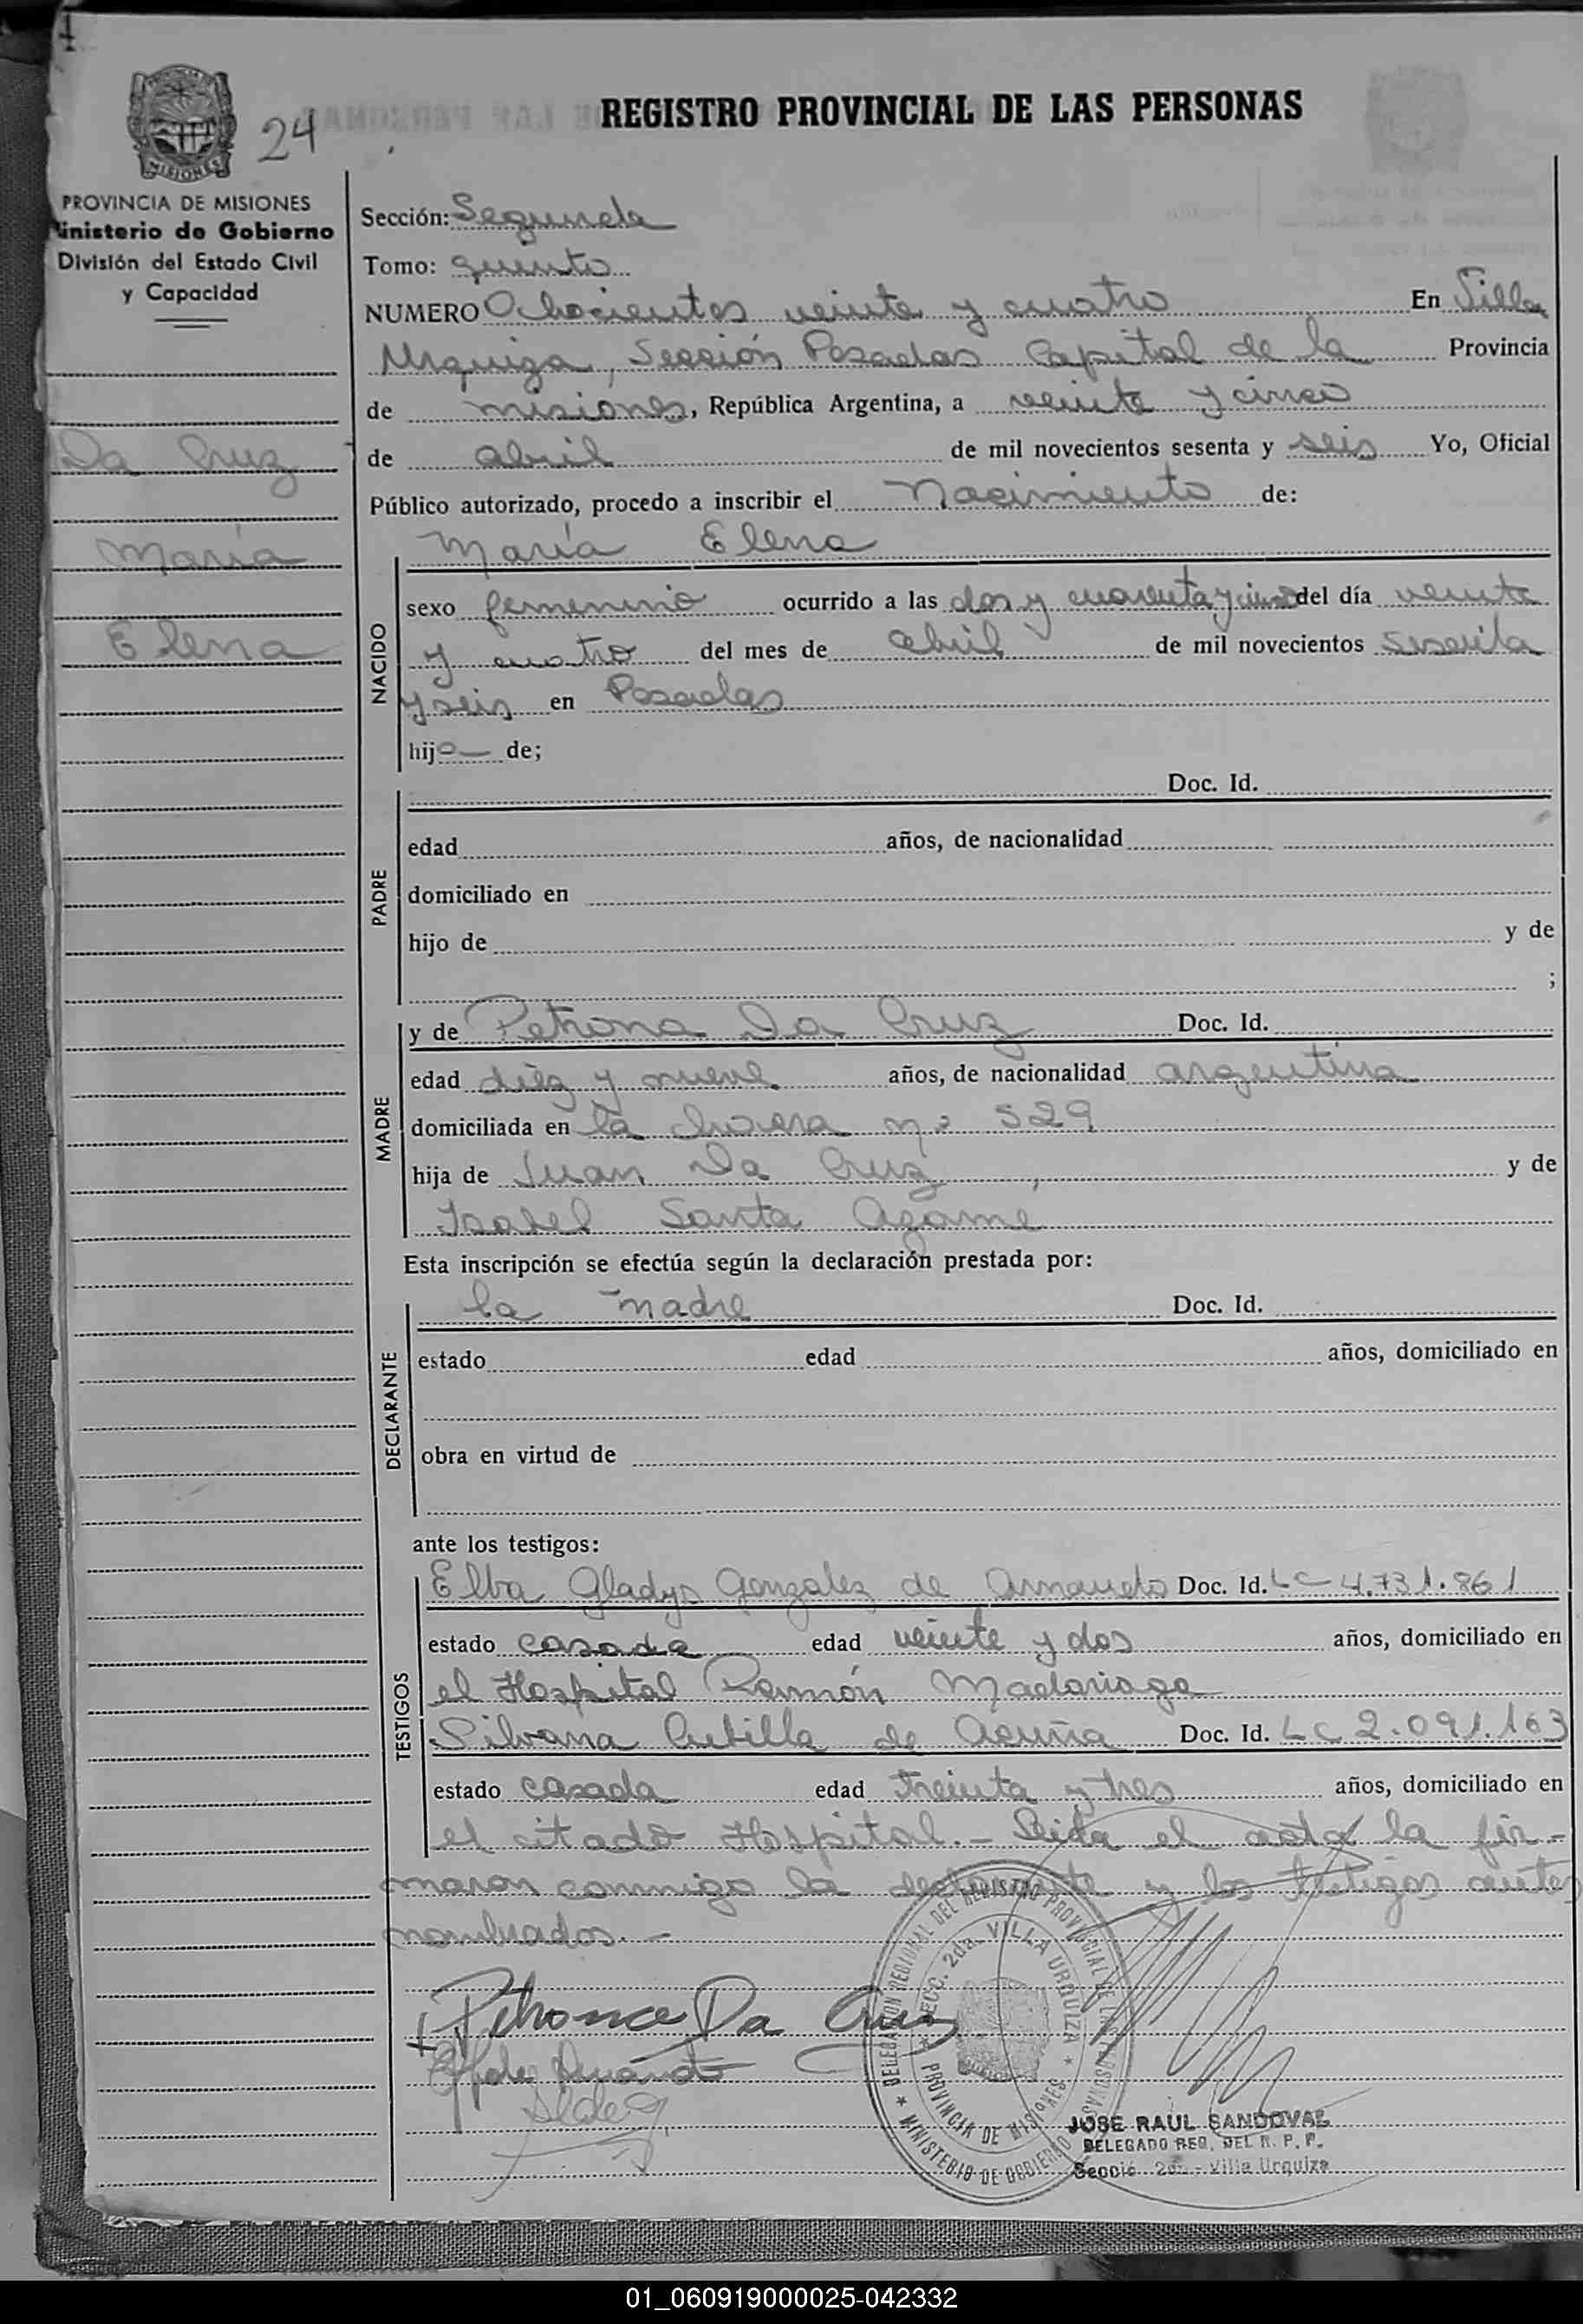 24
REGISTRO PROVINCIAL DE LAS PERSONAS
MISIONES
PROVINCIA DE MISIONES
Ministerio de Gobierno
División del Estado Civil
y Capacidad
Da Cruz
María
Elena
Sección: Segunda
Tomo: quinto
NUMERO Ochocientos veinte y cuatro En Villa
Urquiza, Sección Posadas Capital de la Provincia
de misiones, República Argentina, a veinte y cinco
de abril de mil novecientos sesenta y seis Yo, Oficial
Público autorizado, procedo a inscribir el Nacimiento de:
NACIDO
María Elena
sexo femenino ocurrido a las dos y cuarenta y cinco del día veinte
y cuatro del mes de abril de mil novecientos sesenta
y seis en Posadas
hija de;
PADRE
Doc. Id.
edad años, de nacionalidad
domiciliado en
hijo de y de
;
MADRE
y de Petrona Da Cruz Doc. Id.
edad diez y nueve años, de nacionalidad argentina
domiciliada en la chacra nº 529
hija de Juan Da Cruz, y de
Isabel Santa
Esta inscripción se efectúa según la declaración prestada por:
DECLARANTE
la madre Doc. Id.
estado edad años, domiciliado en
obra en virtud de
ante los testigos:
TESTIGOS
Elba Gladys Gonzalez de Doc. Id. LC 4.731.861
estado casada edad veinte y dos años, domiciliado en
el Hospital Ramón Madariaga
Silvana de Acuña Doc. Id. LC 2.091.163
estado casada edad treinta y tres años, domiciliado en
el citado Hospital.- Leida el acta la fir-
maron conmigo la declarante y los testigos antes
nombrados.-
Petrona Da Cruz
DELEGACION REGIONAL DEL REGISTRO PROVINCIAL DE LAS PERSONAS
SECC. 2da. VILLA URQUIZA
PROVINCIA DE MISIONES
MINISTERIO DE GOBIERNO
JOSE RAUL SANDOVAL
DELEGADO REG. DEL R. P. P.
Secció 2da. - Villa Urquiza
01_060919000025-042332